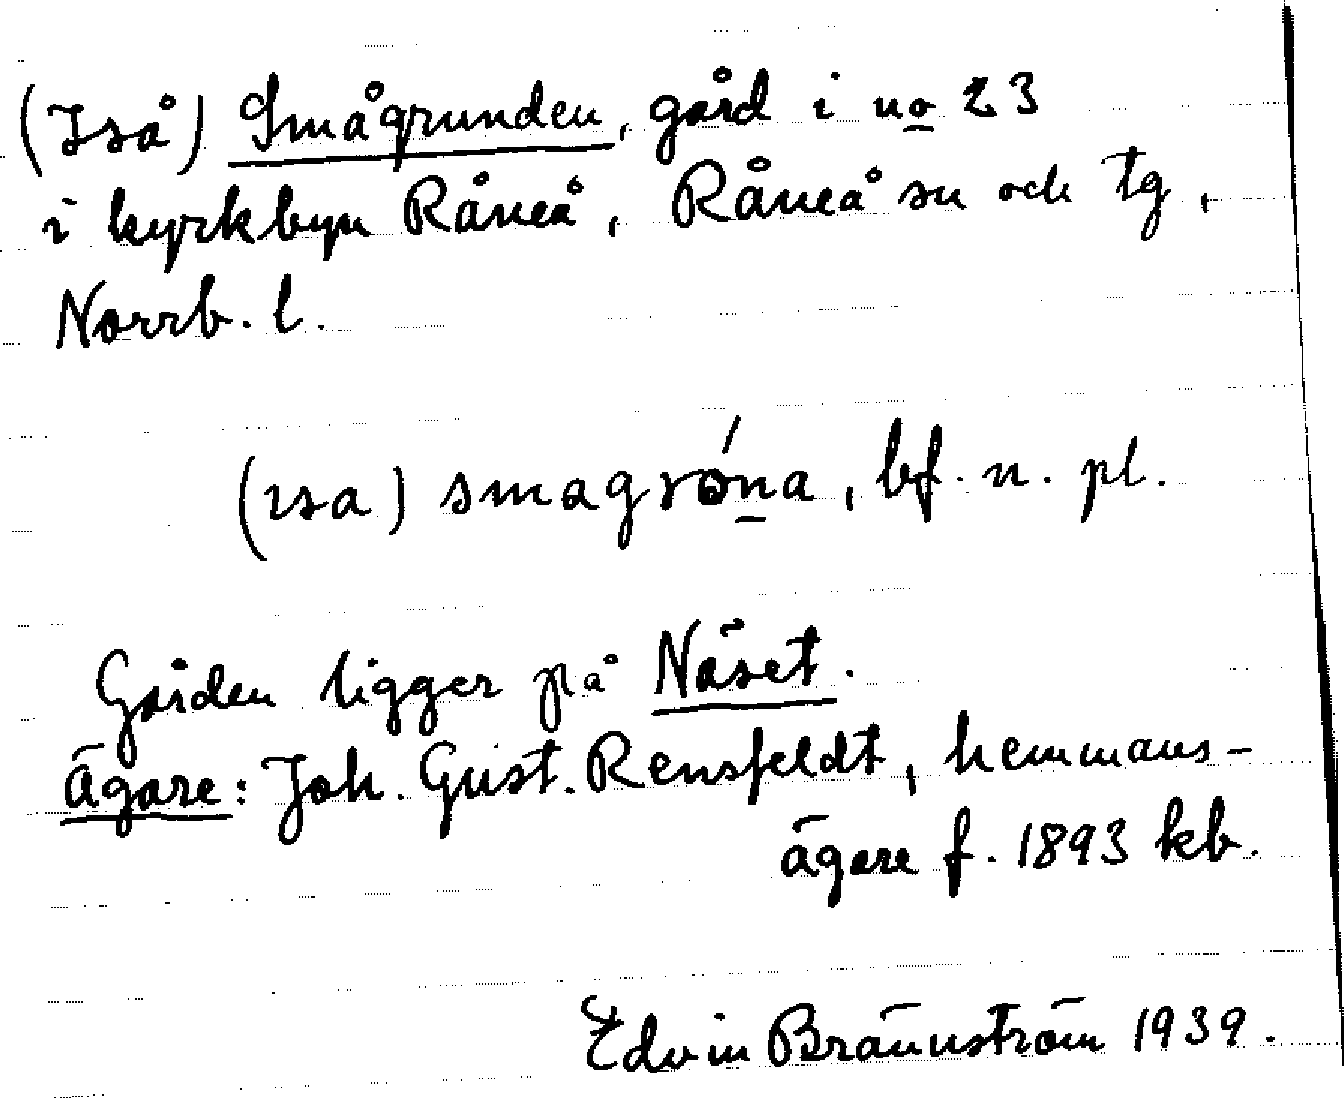 (Iså) Smågrunden, gård i no 23
i kyrkbyn Råneå, Råneå sn och tg,
Norrb. l.
(ısa) smagróna, bf. n. pl.
Gården ligger på Näset.
Ägare: Joh. Gust. Rensfeldt, hemmans-
ägare f. 1893 kb.
Edvin Brännström 1939.